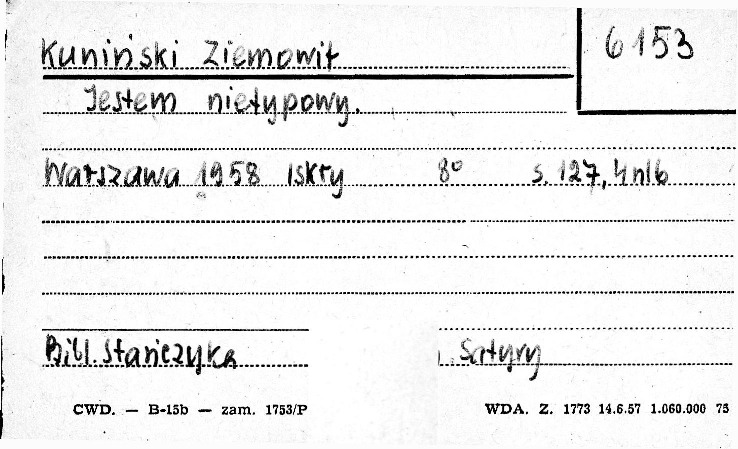 Kuniński Ziemowit 6153
Jestem nietypowy.
Warszawa 1958 Iskry 8° s. 127, 4 nlb
Bibl. Stańczyka Satyry
CWD. — B-15b — zam. 1753/P WDA. Z. 1773 14.6.57 1.060.000 75